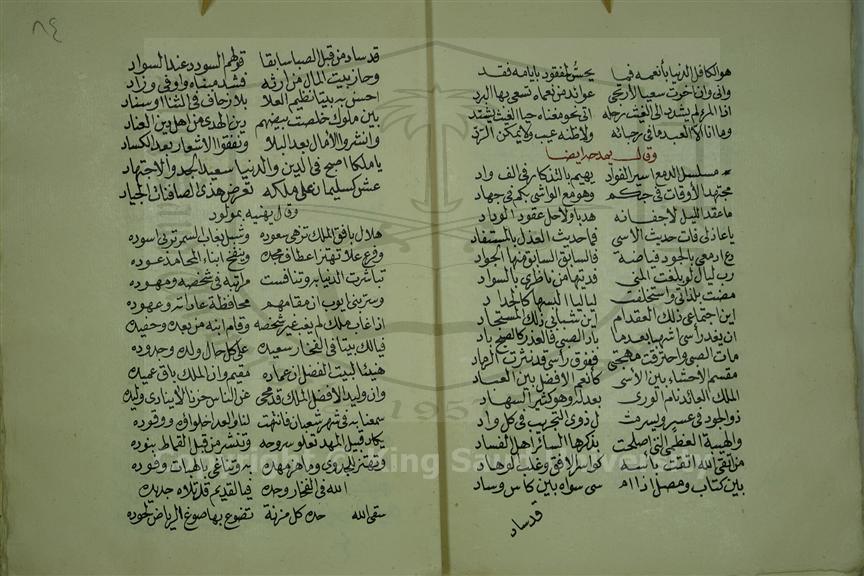 هو الكافل الدنيا بأنعمه فما يحس لمفقود بايامه فقد
واني وان اخرت سعيا لارتجي عوائد من نعماه تسعى بها البرد
اذا المرء لم يشدد الى الغيث رحله اتى نحو مغناه حيا الغيث يشتد
وما انا الا العبد ما في رجائه ولا ظنه عيب ولا يمكن الرد
وقال يمدحه ايضا
مسلسل الدمع اسير الفؤاد يهيم بالتذكار في الف واد
مجتهد الأوقات في حبكم وهو مع الواشي بكم في جهاد
ما عقد الليل لاجفانه هدبا ولا حل عقود الوداد
يا عاذلي فات حديث الاسى فما حديث العذل بالمستفاد
دع ادمعي بالجود فياضة فالسابق السابق منها الجواد
رب ليال لو بلغت المنى فديتها من ناظري بالسواد
مضت بلذاتي واستخلفت لياليا البسها كالحداد
اين اجتماعي ذلك العقد ام اين شبابي ذلك المستجاد
ان يغد رأسي اشهبا بعد ما باد الصبى فالعذر كالصبح باد
مات الصبى واحترقت مهجتي ففوق رأسي قد نثرت الرماد
مقسم الاحشاء بين الأسى كأنعم الافضل بين العباد
الملك العائد نام الورى بعدله وهو كثير السهاد
ذو الجود في عسر ويسر حدث ل ذوي التجريب في كل واد
والهيبة العظمى التي اصلحت بذكرها السائر اهل الفساد
من اتقى الله اتقت بأسه كواسر الافق وغلب الوهاد
بين كتاب ومصل اذا ام سى سواه بين كاس وساد
قد ساد
٨٤
قد ساد من قبل الصبا سابقا قولهم السودد عند السواد
وحاز بيت الملك من ارثه فشد مبناه واوفى وزاد
احسن به بيتا نظيم العلا بلا زحاف في الثنا او سناد
بين ملوك خلصت بيضهم دين الهدى من اهل بين العناد
وانشروا الآمال بعد البلا ونفقوا الاشعار بعد الكساد
يا ملكا اصبح في الدين والدنيا سعيد الجد والاجتهاد
عش كسليمان على ملكه تعرض هذى الصافنات الجياد
وقال يهنيه بمولود
هلال بافق الملك تزهى سعوده وشبل بغاب السمر تربى اسوده
وفرع علا تهتز اعطاف مجده وينفخ ابناء المحامد عوده
تباشرت الدنيا به وتنافست مراتبه في شخصه ومهوده
وسر بني ايوب ان مقامهم محافظة عاداته وعهوده
اذا غاب ملك لم يغب غير شخصه وقام ابنه من بعده وحفيده
فيا لك بيتا في الفخار سعيده على كل حال ولده وجدوده
هنيئا لبيت الفضل ان عماده مقيم وان الملك باق عميده
وان وليد الافضل الملك قد محى عن الناس حزنا لا ينادى وليده
سمعنا به في شهر شعبان فانتهت لنا ولعدا حلواؤه ووقوده
يكاد قبيل المهد تعلو سروجه وتنشر من قبل القماط بنوده
وتهتز للجدوى وما هز مهده به وتناغى بالهبات وفوده
الله في الفخار وجده فيا لقديم قد تلاه جديده
سقى الله جده كل مزنة تضوع بها صوغ الرياض لجوده
Copyright © King Saud University
1957